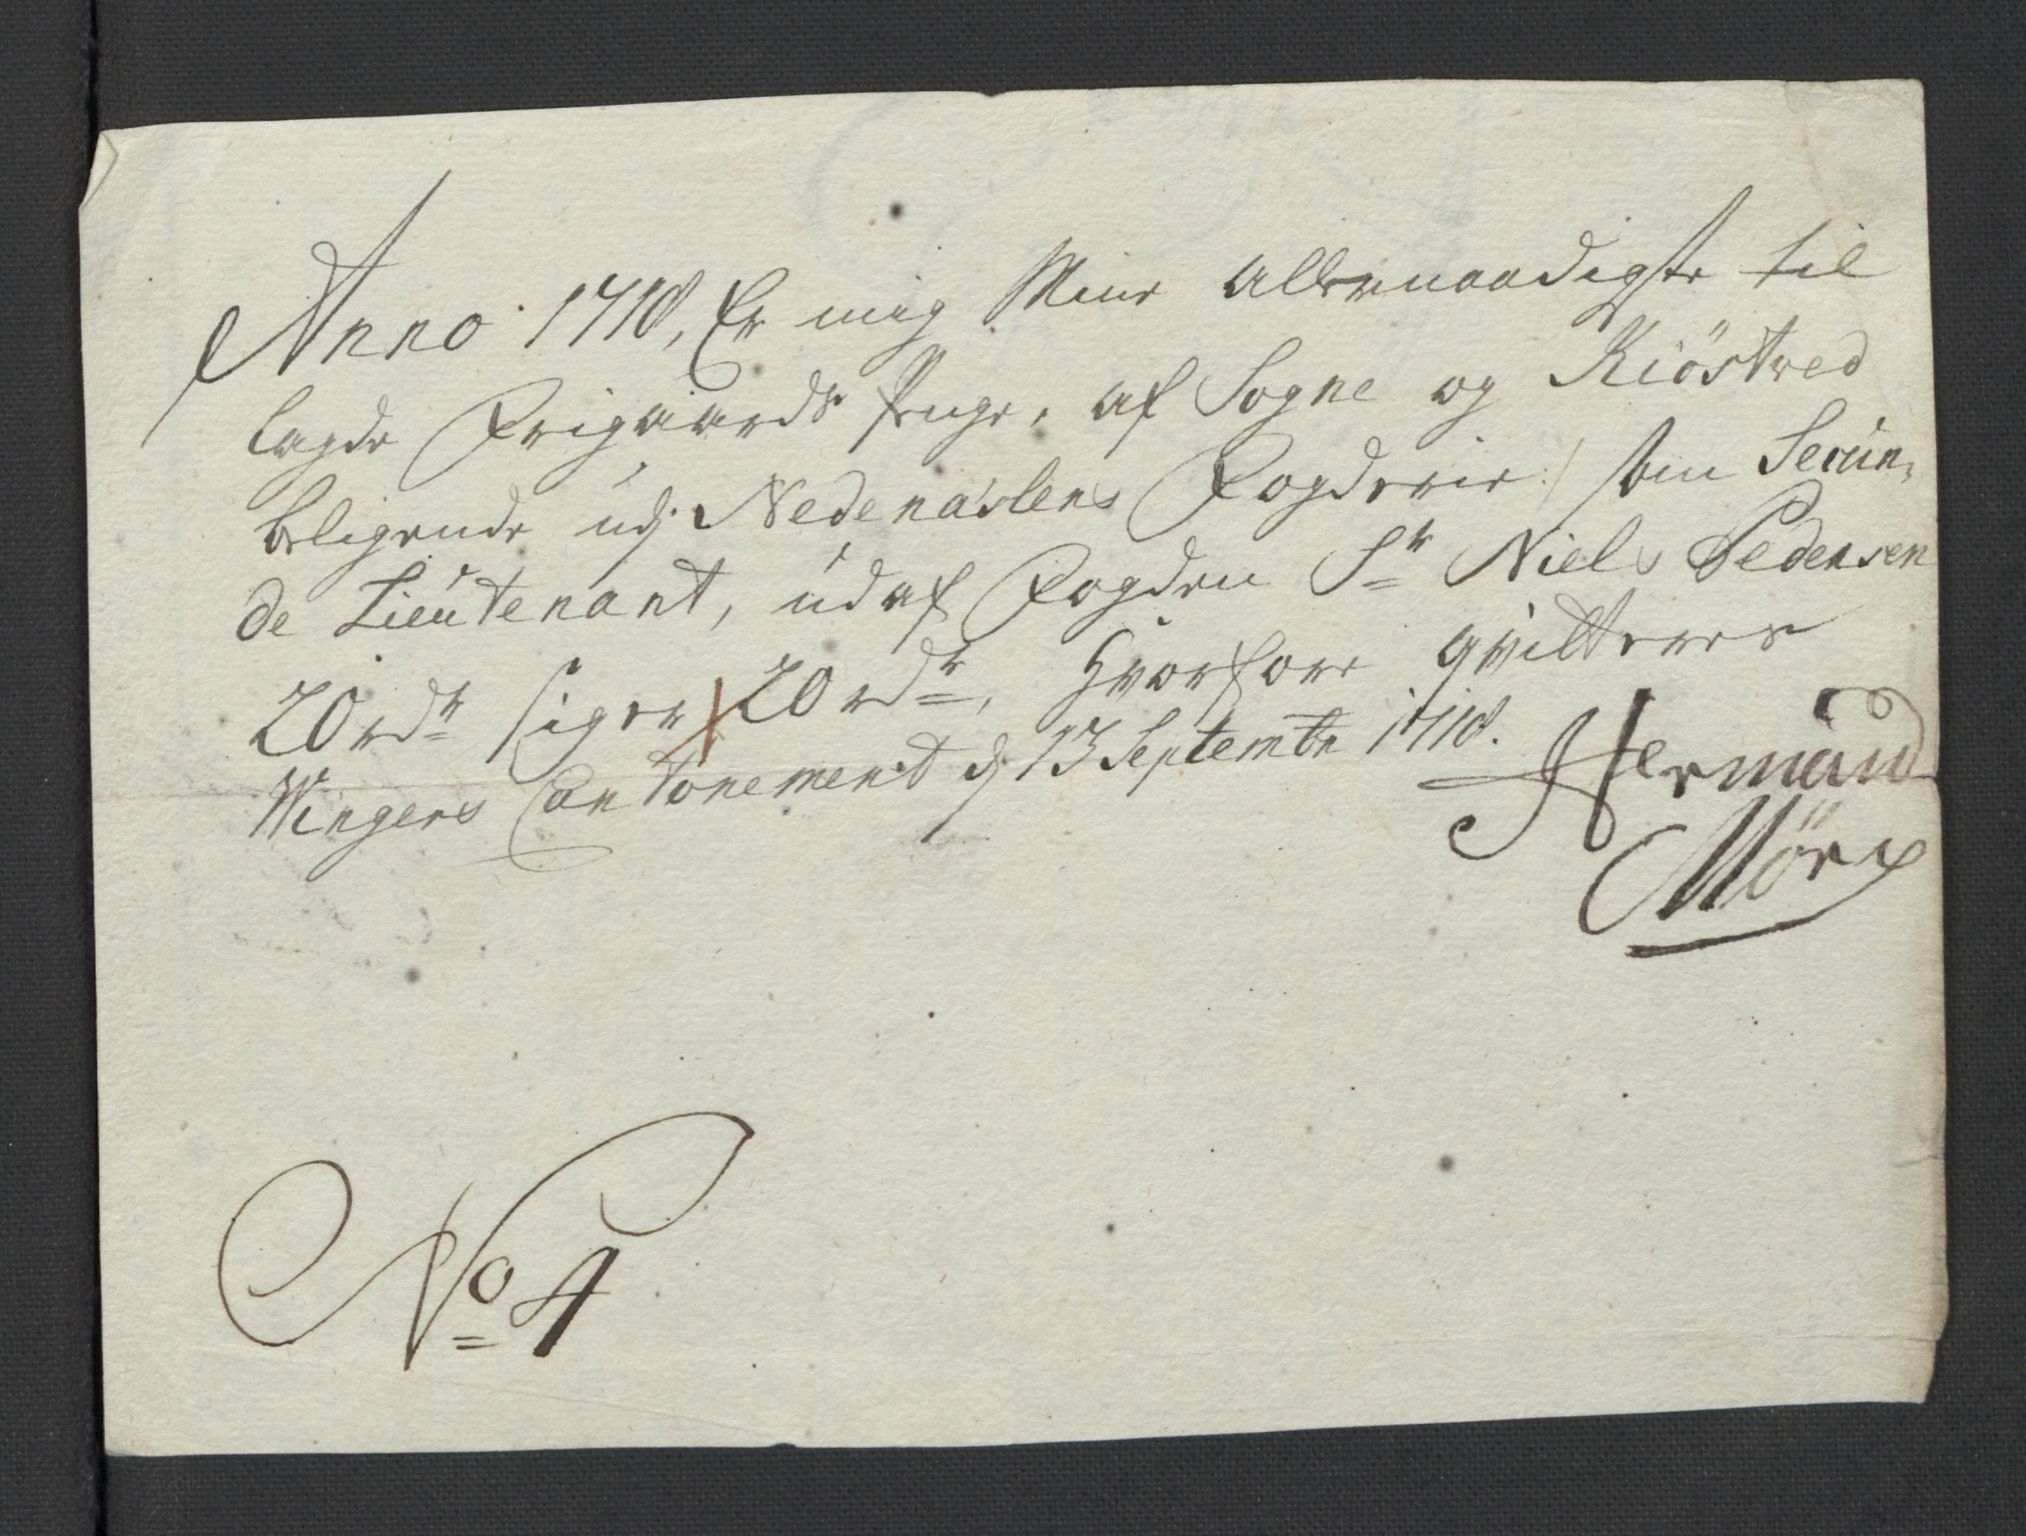 Anno 1718, Er mig Mine allernaadigste til
lagde Frigaards penge, af Sogne og Kiöstved
beligende udj Nedenæslens Fogderie / som Secün,
de Lieutenant, udaf Fogden Sr Niels Pedersen
20 rdr siger 20 rdr, hvorfore qvitterer
Wingers Cantonement dj 13 Septembr 1718.
Hermand
Mörch
No 4